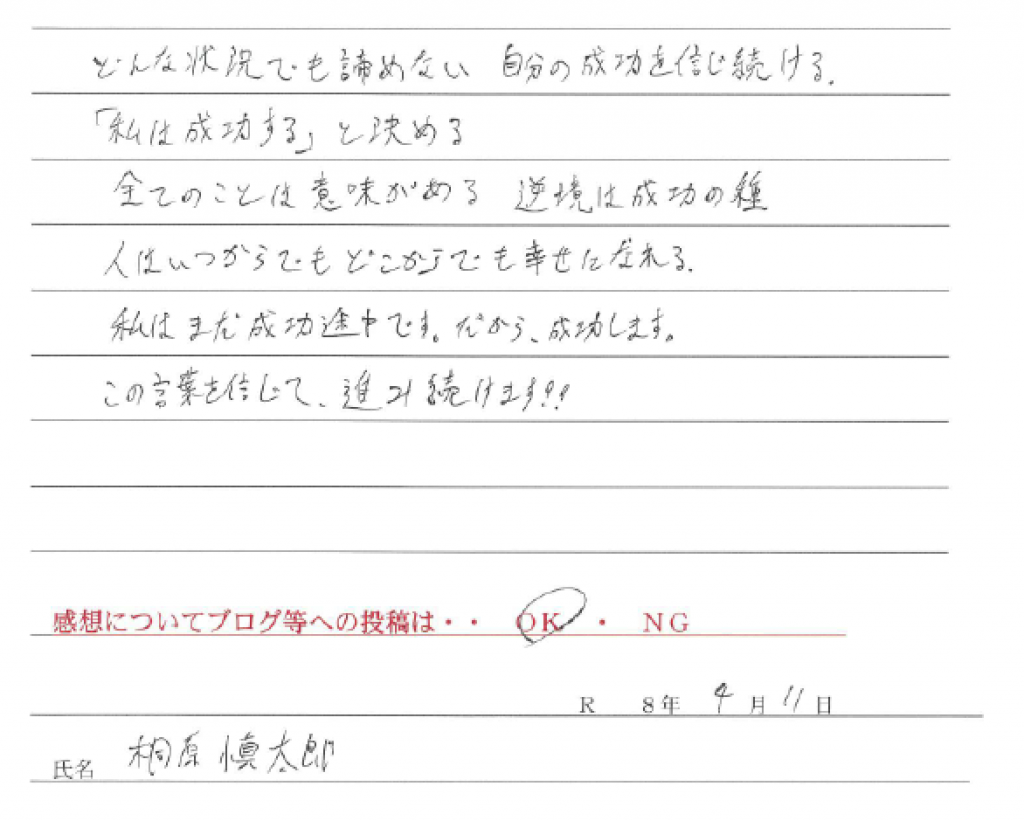 どんな状況でも諦めない 自分の成功を信じ続ける.
「私は成功する」と決める
全てのことは意味がある 逆境は成功の種
人はいつからでもどこからでも幸せになれる.
私はまだ成功途中です。だから、成功します。
この言葉を信じて、進み続けます!!
感想についてブログ等への投稿は・・ OK ・ NG
R 8年 4月 11日
氏名 桐原 慎太郎